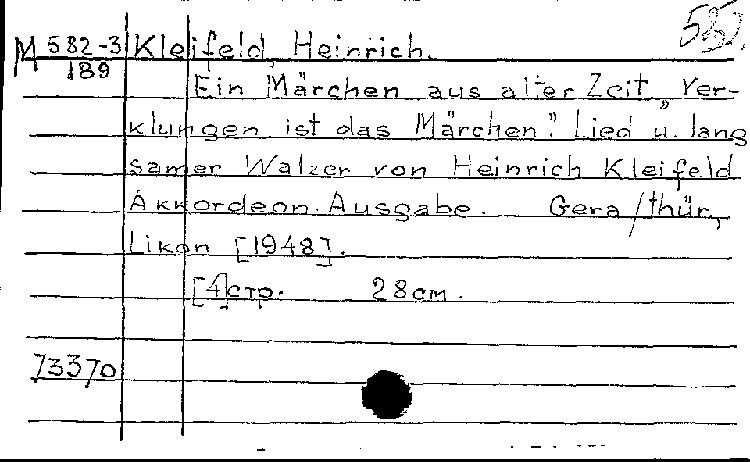 535.
M 582-3 Kleifeld, Heinrich.
189
Ein Märchen aus alter Zeit „Ver-
klungen ist das Märchen". Lied u. lang
samer Walzer von Heinrich Kleifeld
Akkordeon-Ausgabe. Gera/thür,
Likon [1948].
[4]стр. 28cm.
73370